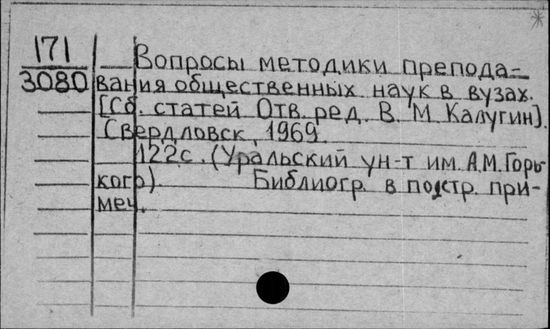 171
3080
Вопросы методики препода-
вания общественных наук в вузах.
[Сб. статей Отв. ред. В. М. Калугин].
Свердловск, 1969.
122с. (Уральский ун-т им. А.М. Горь-
кого). Библиогр. в подстр. при-
меч.